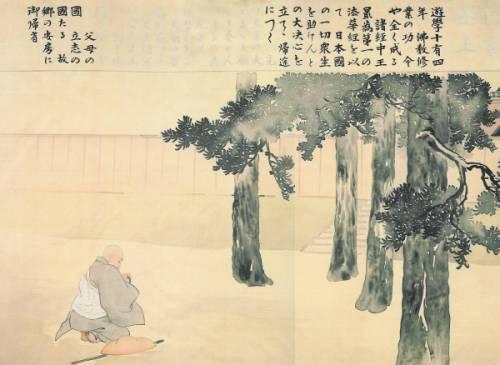 遊學十有四
年 佛教修
業の功 今
や全く成る
諸經中王
最爲第一の
法華經を以
て 日本國
の一切衆生
を助けんと
の大決心を
立てゝ 帰途
につく
父母の
國 立志の
國たる 故
郷の安房に
御帰省